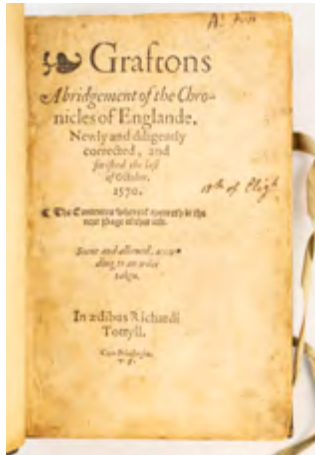 Graftons
Abridgement of the Chro-
nicles of Englande.
Newly and diligently
corrected, and
finished the last
of October.
1570.
The Contentes wherof apeareth in the
next Page of this
Seene and allowed, accor
ding to an order
taken.
In ædibus Richardi
Tottyll.
Cum Priuilegio.
of